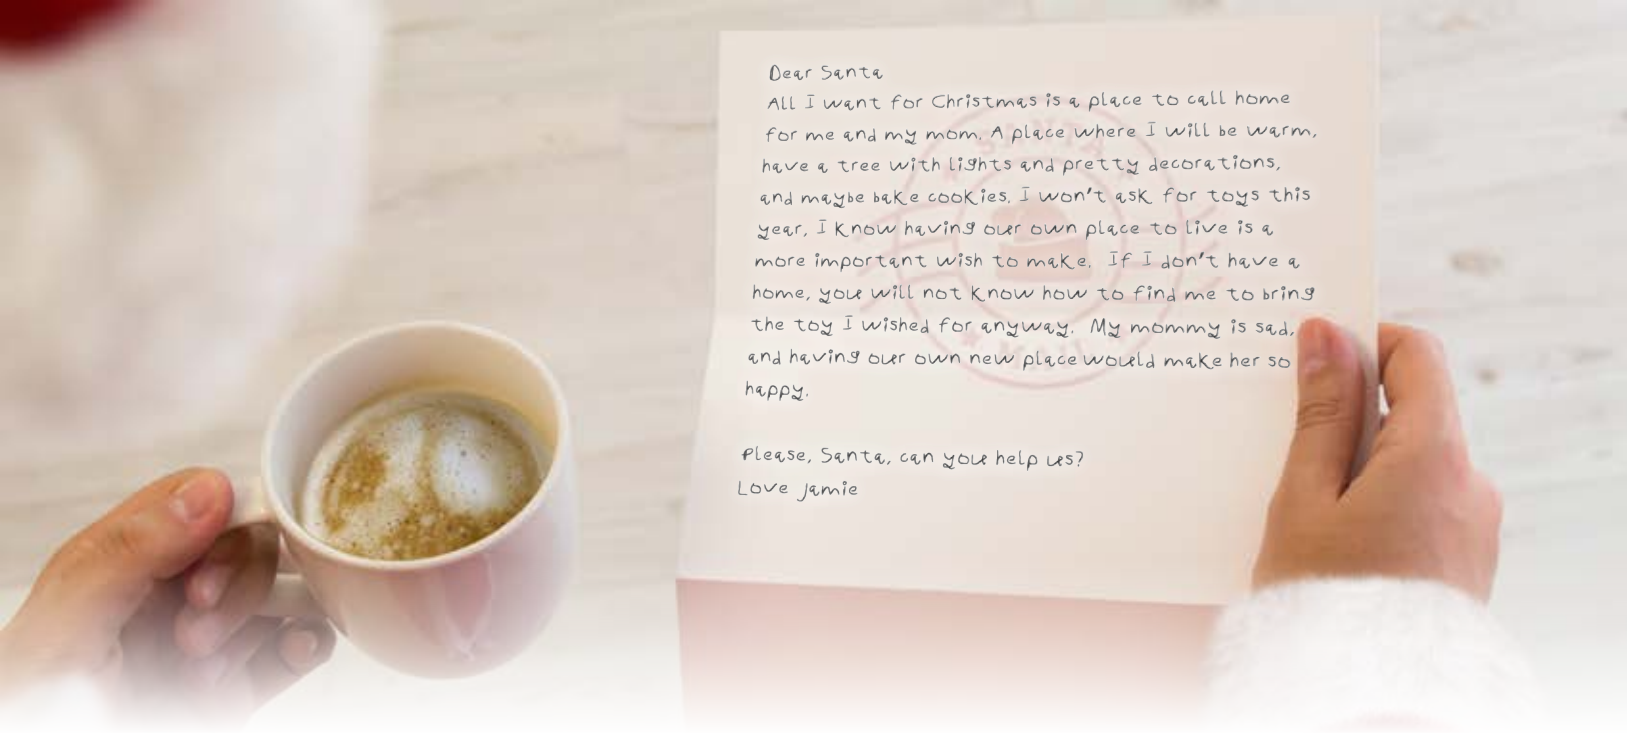 Dear Santa
All I want for Christmas is a place to call home
for me and my mom. A place where I will be warm,
have a tree with lights and pretty decorations,
and maybe bake cookies. I won't ask for toys this
year, I know having our own place to live is a
more important wish to make. If I don't have a
home, you will not know how to find me to bring
the toy I wished for anyway. My mommy is sad,
and having our own new place would make her so
happy.
Please, Santa, can you help us?
Love Jamie
SANTA
MAIL